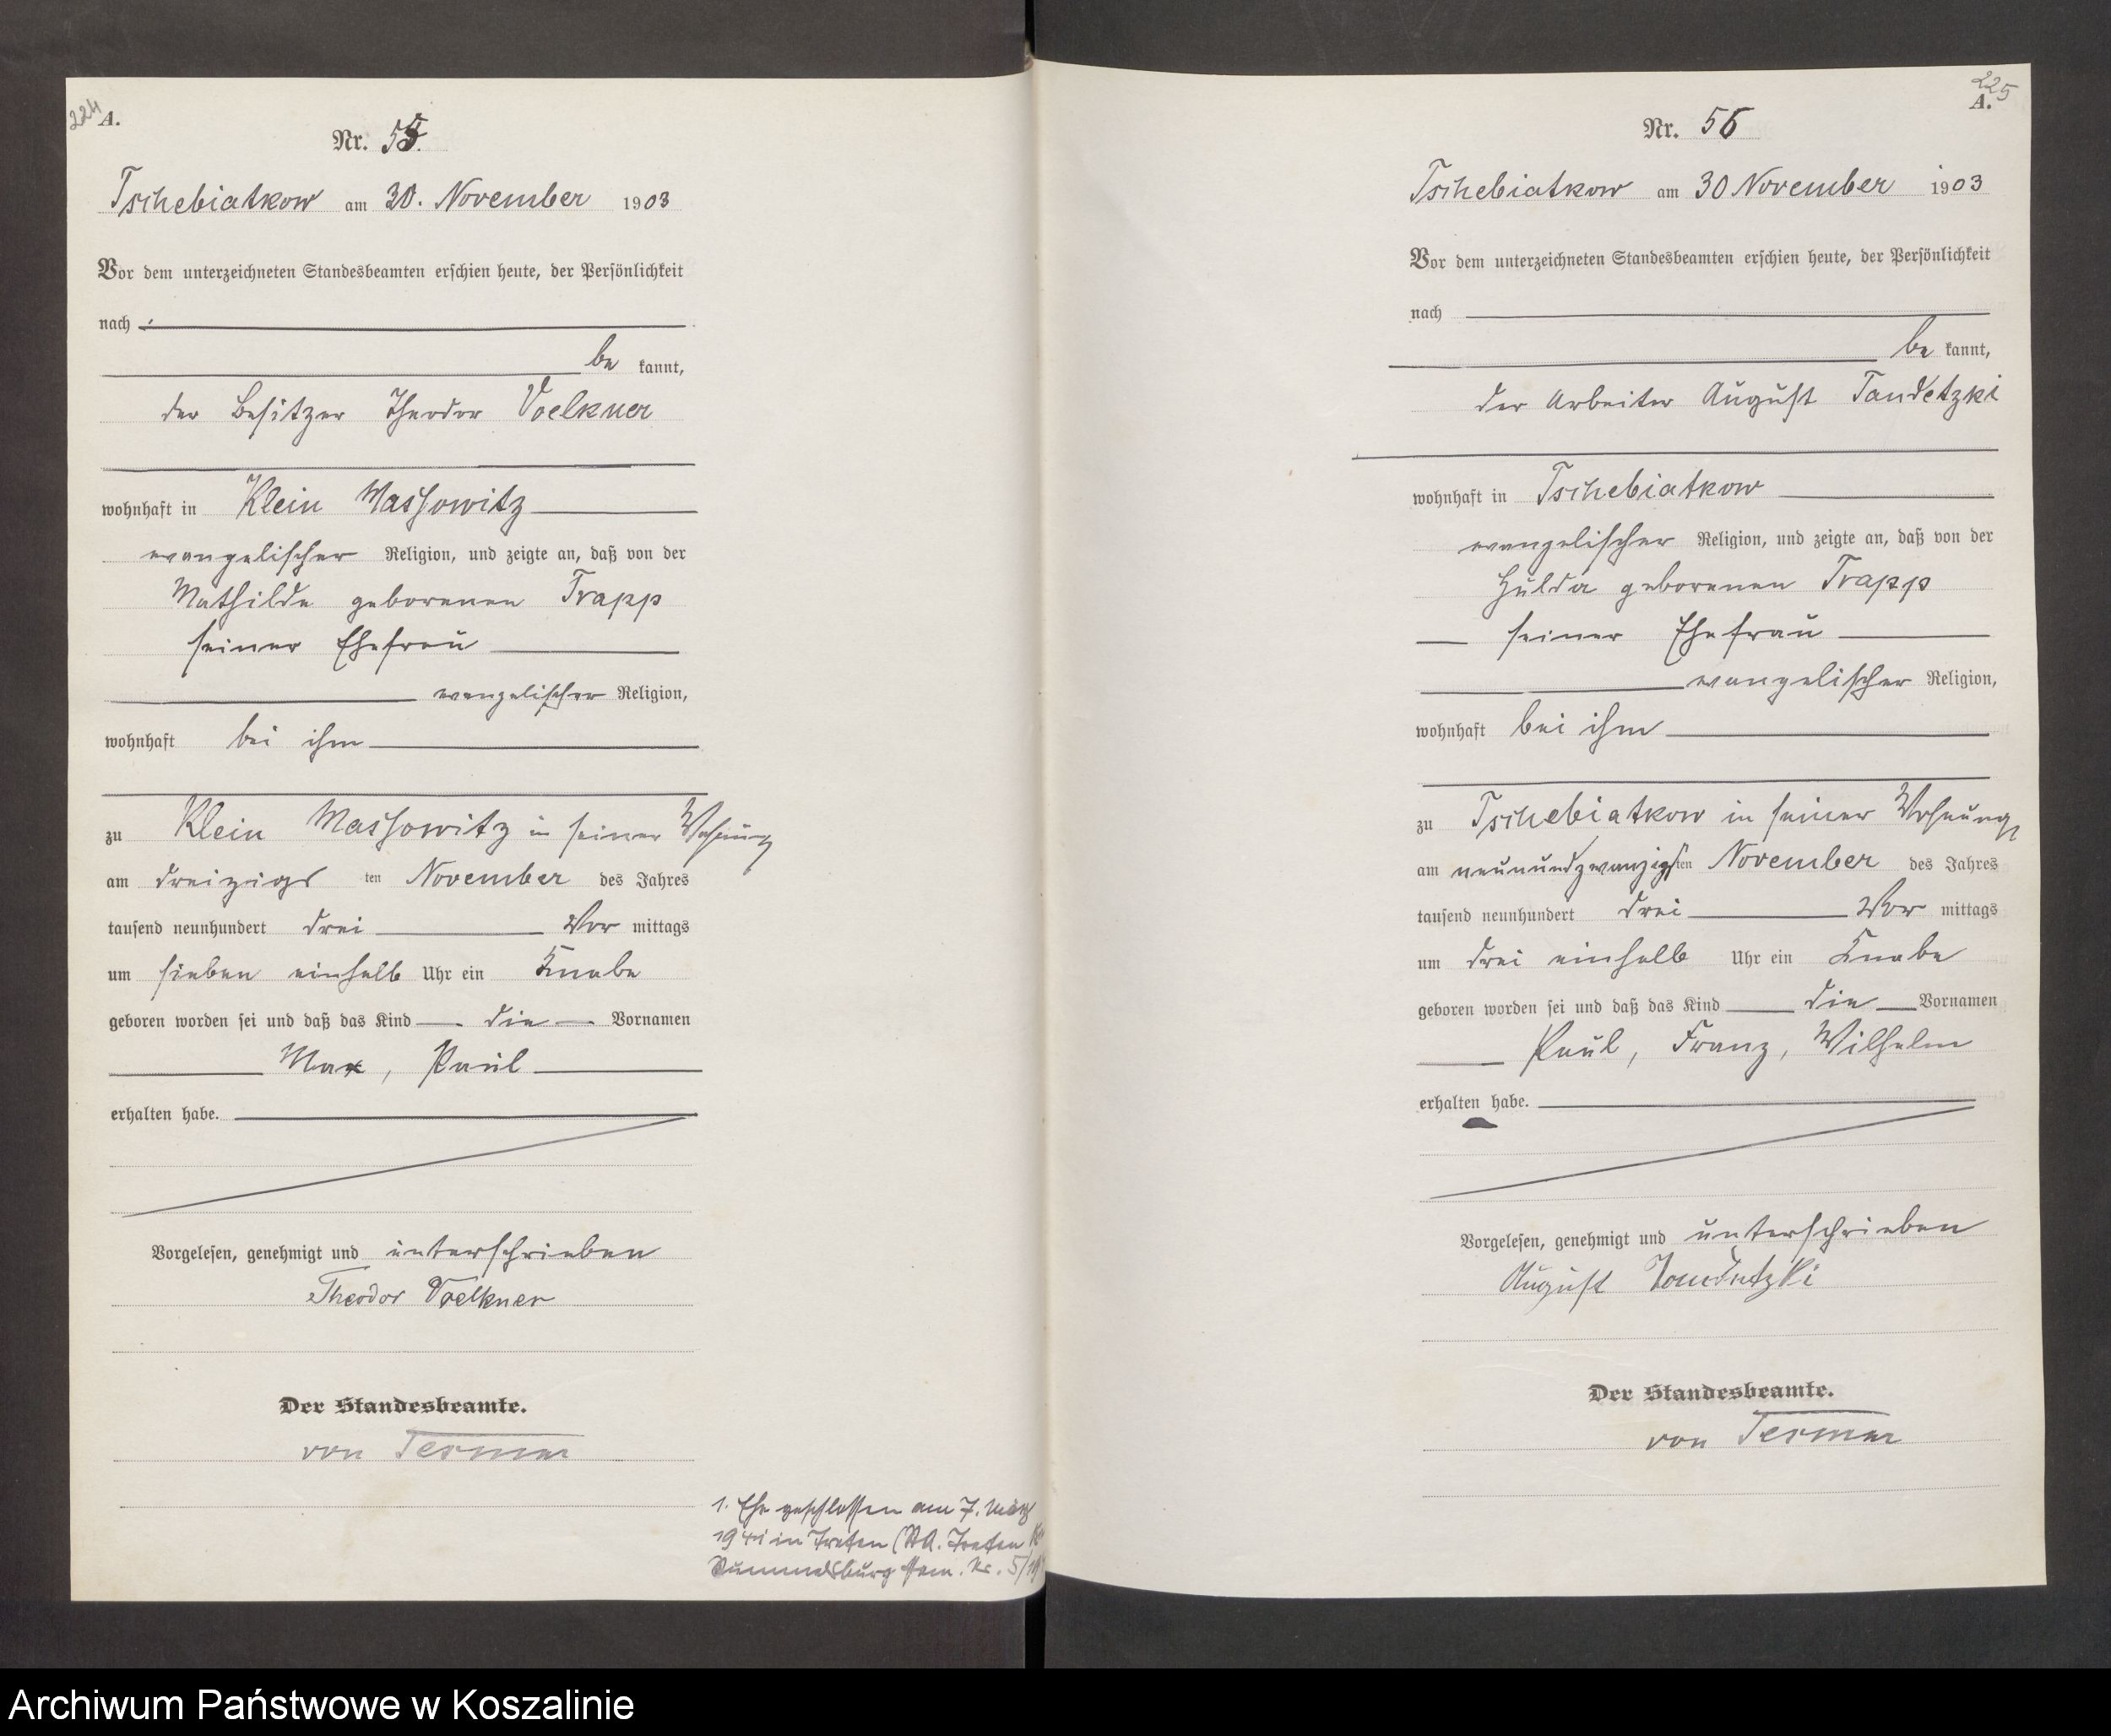 224
A.
Nr. 55.
Tschebiatkow am 30. November 1903
Vor dem unterzeichneten Standesbeamten erschien heute, der Persönlichkeit
nach
be kannt,
der Besitzer Theodor Voelkner
wohnhaft in Klein Massowitz
evangelischer Religion, und zeigte an, daß von der
Mathilde geborenen Trapp
seiner Ehefrau
evangelischer Religion,
wohnhaft bei ihm
zu Klein Massowitz in seiner Wohnung
am dreizigs ten November des Jahres
tausend neunhundert drei Vor mittags
um sieben einhalb Uhr ein Knabe
geboren worden sei und daß das Kind die Vornamen
Max, Paul
erhalten habe.
Vorgelesen, genehmigt und unterschrieben
Theodor Voelkner
Der Standesbeamte.
von Tesmar
1. Ehe geschlossen am 7. März
1941 in Treten (StA. Treten
Rummelsburg Pom. Nr. 5/19
225
A.
Nr. 56
Tschebiatkow am 30 November 1903
Vor dem unterzeichneten Standesbeamten erschien heute, der Persönlichkeit
nach
be kannt,
der Arbeiter August Tandetzki
wohnhaft in Tschebiatkow
evangelischer Religion, und zeigte an, daß von der
Hulda geborenen Trapp
seiner Ehefrau
evangelischer Religion,
wohnhaft bei ihm
zu Tschebiatkow in seiner Wohnung
am neunundzwanzigsten November des Jahres
tausend neunhundert drei Vor mittags
um drei einhalb Uhr ein Knabe
geboren worden sei und daß das Kind die Vornamen
Paul, Franz, Wilhelm
erhalten habe.
Vorgelesen, genehmigt und unterschrieben
August Tandetzki
Der Standesbeamte.
von Tesmar
Archiwum Państwowe w Koszalinie